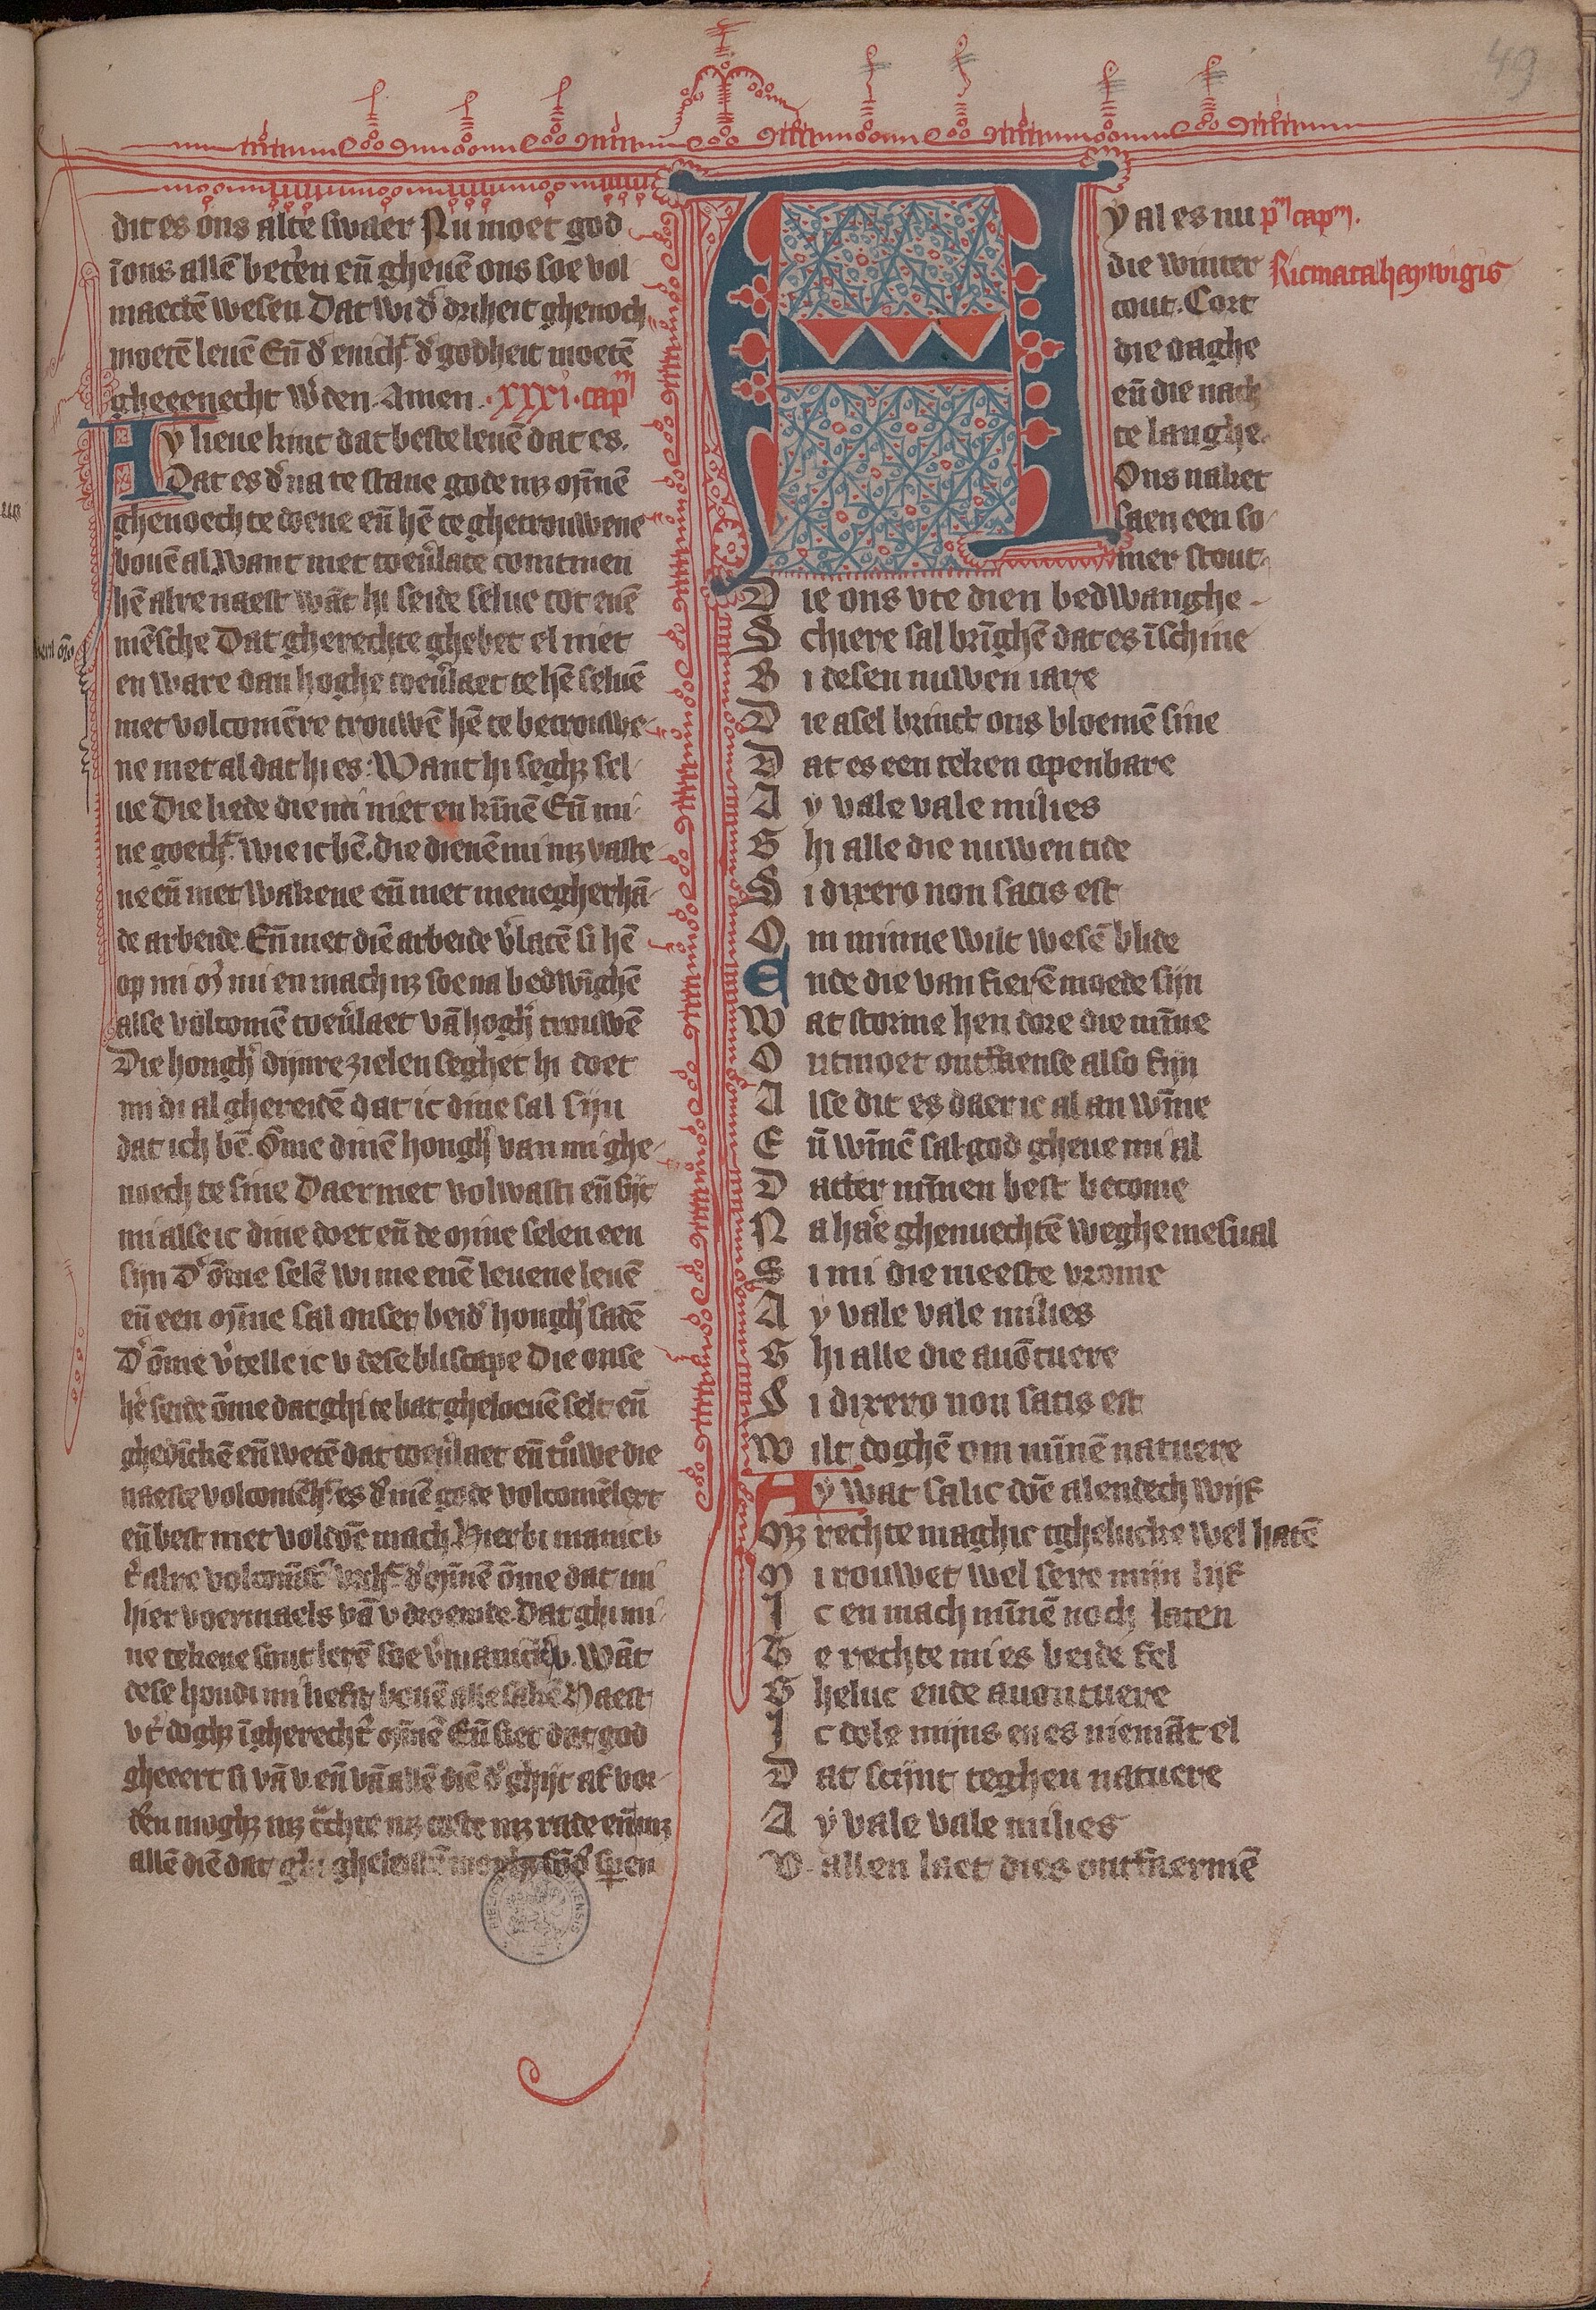 49
dit es ons alte swaer Nu moet god
ī ons allē bet'en eñ gheuē ons soe vol
maectē wesen Dat wi d' driheit ghenoech
moetē leuē Eñ d' enich' d' godheit moetē
gheeenecht w'den. Amen. .xxxi. cap
Ay lieue kint dat beste leuē dat es.
Dat es d'na te staue gode mz mīnē
ghenoech te doene eñ hē te ghetrouwene
bouē al. Want met toeu'late comtmen
hē alre naest wāt hi seide selue tot euē
mēsche Dat gherechte ghebet el niet
en ware dan hoghe toeu'laet te hē seluē
met volcomēre trouwē hē te betrouwe
ne met al dat hi es: Want hi seghz sel
ue Die liede die mi niet en kinnē Eñ mi
ne goeth' wie ic bē. die dienē mi mz vaste
ne eñ met wakene eñ met menegherhā
de arbeide. Eñ met diē arbeide v'latē si hē
op mi m' mi en mach mz soe na bedwīghē
alse volcomē toeu'laet vā hogh' trouwē
Die hongh' dijnre zielen seghet hi doet
mi di al ghereidē dat ic dine sal sijn
dat ich bē. Ōme dinē hongh' van mi ghe
noech te sine Daer met volwasti eñ bijt
mi alse ic dine doet eñ de mine selen een
sijn D' ōme selē wi ine euē leuene leuē
eñ een mīne sal onser beid' hongh' sadē
D' ōme v'telle ic v dese bliscape Die onse
h'e seide ōme dat ghi te bat ghelouē selt eñ
ghedīckē eñ wetē dat toeu'laet eñ trouwe die
naeste volcomēh' es d' mē gode volcomelect
eñ best met voldoē mach. Hier bi manic v
hier voermaels vā v droemde. Dat ghi mi
ne tekene sout lerē soe v'manic v. Wāt
v't doghz ī gherecht' mīnē Eñ siet dat god
gheeert si vā v. eñ vā allē diē d' ghijt af vor
d'en moghz mz cōchte mz coste mz rade eñ mz
allē diē dat ghi
Ay al es nu p'm cap'm.
die winter Ricmata haywigis
cout. Cort
die daghe
eñ die nach
te langhe.
Ons naket
saen een so
mer stout
Die ons vte dien bedwanghe
Schiere sal brīghē dat es ī schine
Bi desen nuwen iare
Die asel brinct ons bloemē fine
Dat es een teken openbare
Ay vale vale milies
Ghi alle die nuwen tide
Si dixero non satis est
Om minne wilt wesē blide
Ende die van fierē moede sijn
Wat storme hen dore die mīne
Outmoet ontfaense also fijn
Alse dit es daer ic al an wīne
Eñ wīnē sal. god gheue mi al
Datter mīnen best become
Na ha'e ghenuechtē weghe mesual
Si mi die meeste vrome
Ay vale vale milies
Ghi alle die auōtuere
Si dixero non satis est
Wilt doghē om mīnē natuere
Ay wat salic doē alendech wijf
Mz rechte maghic tghelucke wel hatē
Mi rouwet wel sere mijn lijf
Ic en mach mīnē noch laten
Te rechte mi es beide fel
Gheluc ende auontuere
Ic dole mijns en es niemāt el
Dat scijnt teghen natuere
Ay vale vale milies
V allen laet dies ontfaermē